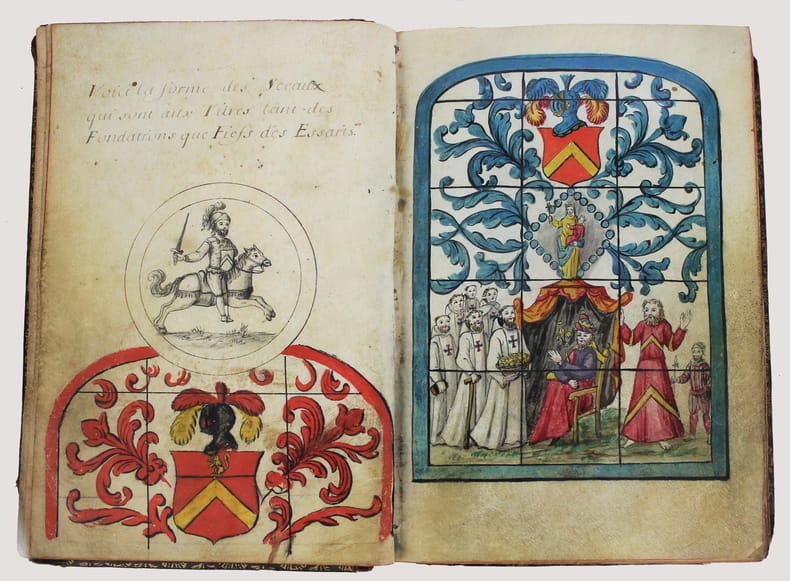 Voicé la forme des Sceaux
qui sont aux Titres tant des
Fondations que Fiefs des Essarts.